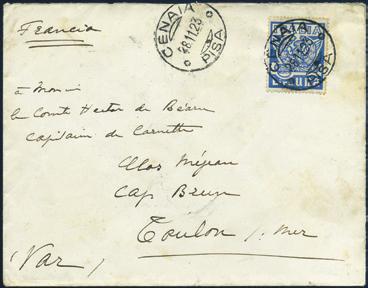 Francia
CENAIA
28.11.23
PISA
CENAIA
PISA
à Monsieur
le Comte Hector de Béarn
Capitaine de Corvette
Clos Méjean
Cap Brun
Toulon / mer
(Var)